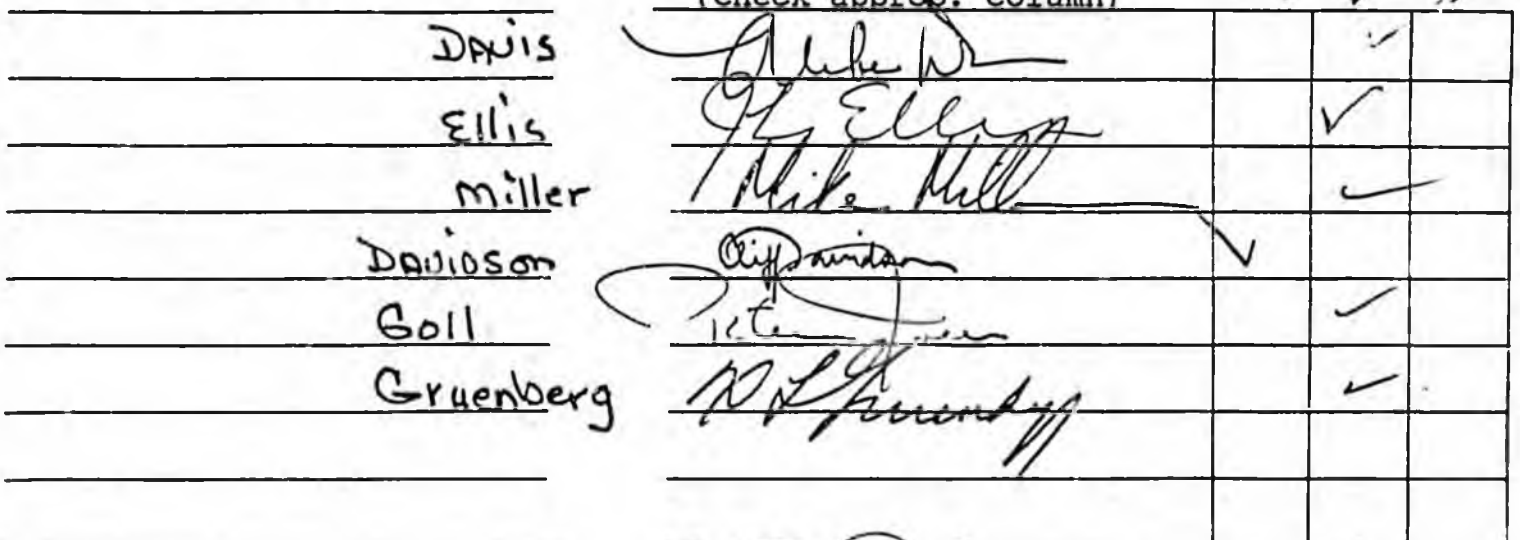 (Check approp. column)
DAVIS
Ellis Ellis
Miller Mike Mill
DAVIDSON Cliff Davidson
Goll
Gruenberg